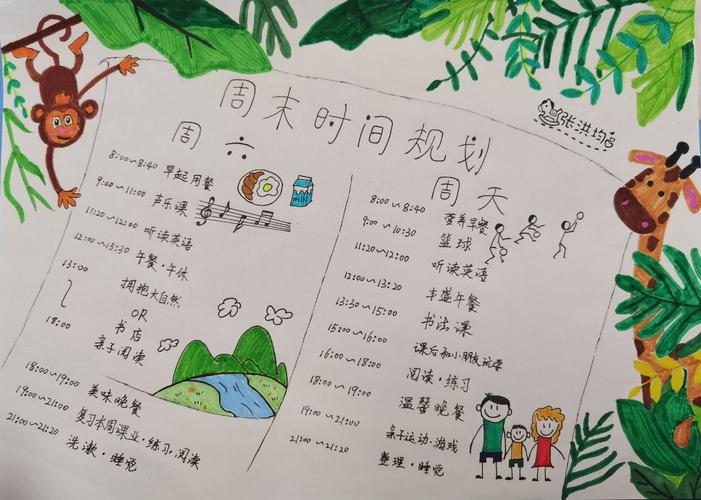 周末时间规划
张洪均
周六
8:00~8:40 早起用餐
9:00~11:00 声乐课
11:20~12:00 听读英语
12:00~13:30 午餐·午休
13:00~18:00 拥抱大自然
OR
书店
亲子阅读
18:00~19:00 美味晚餐
19:00~21:00 复习本周课业·练习·阅读
21:00~21:20 洗漱·睡觉
milk
周天
8:00~8:40 营养早餐
9:00~10:30 篮球
11:20~12:00 听读英语
12:00~13:20 丰盛午餐
13:30~15:00 书法课
15:00~16:00 课后和小朋友玩耍
16:00~18:00 阅读·练习
18:00~19:00 温馨晚餐
19:00~21:00 亲子运动·游戏
21:00~21:20 整理·睡觉